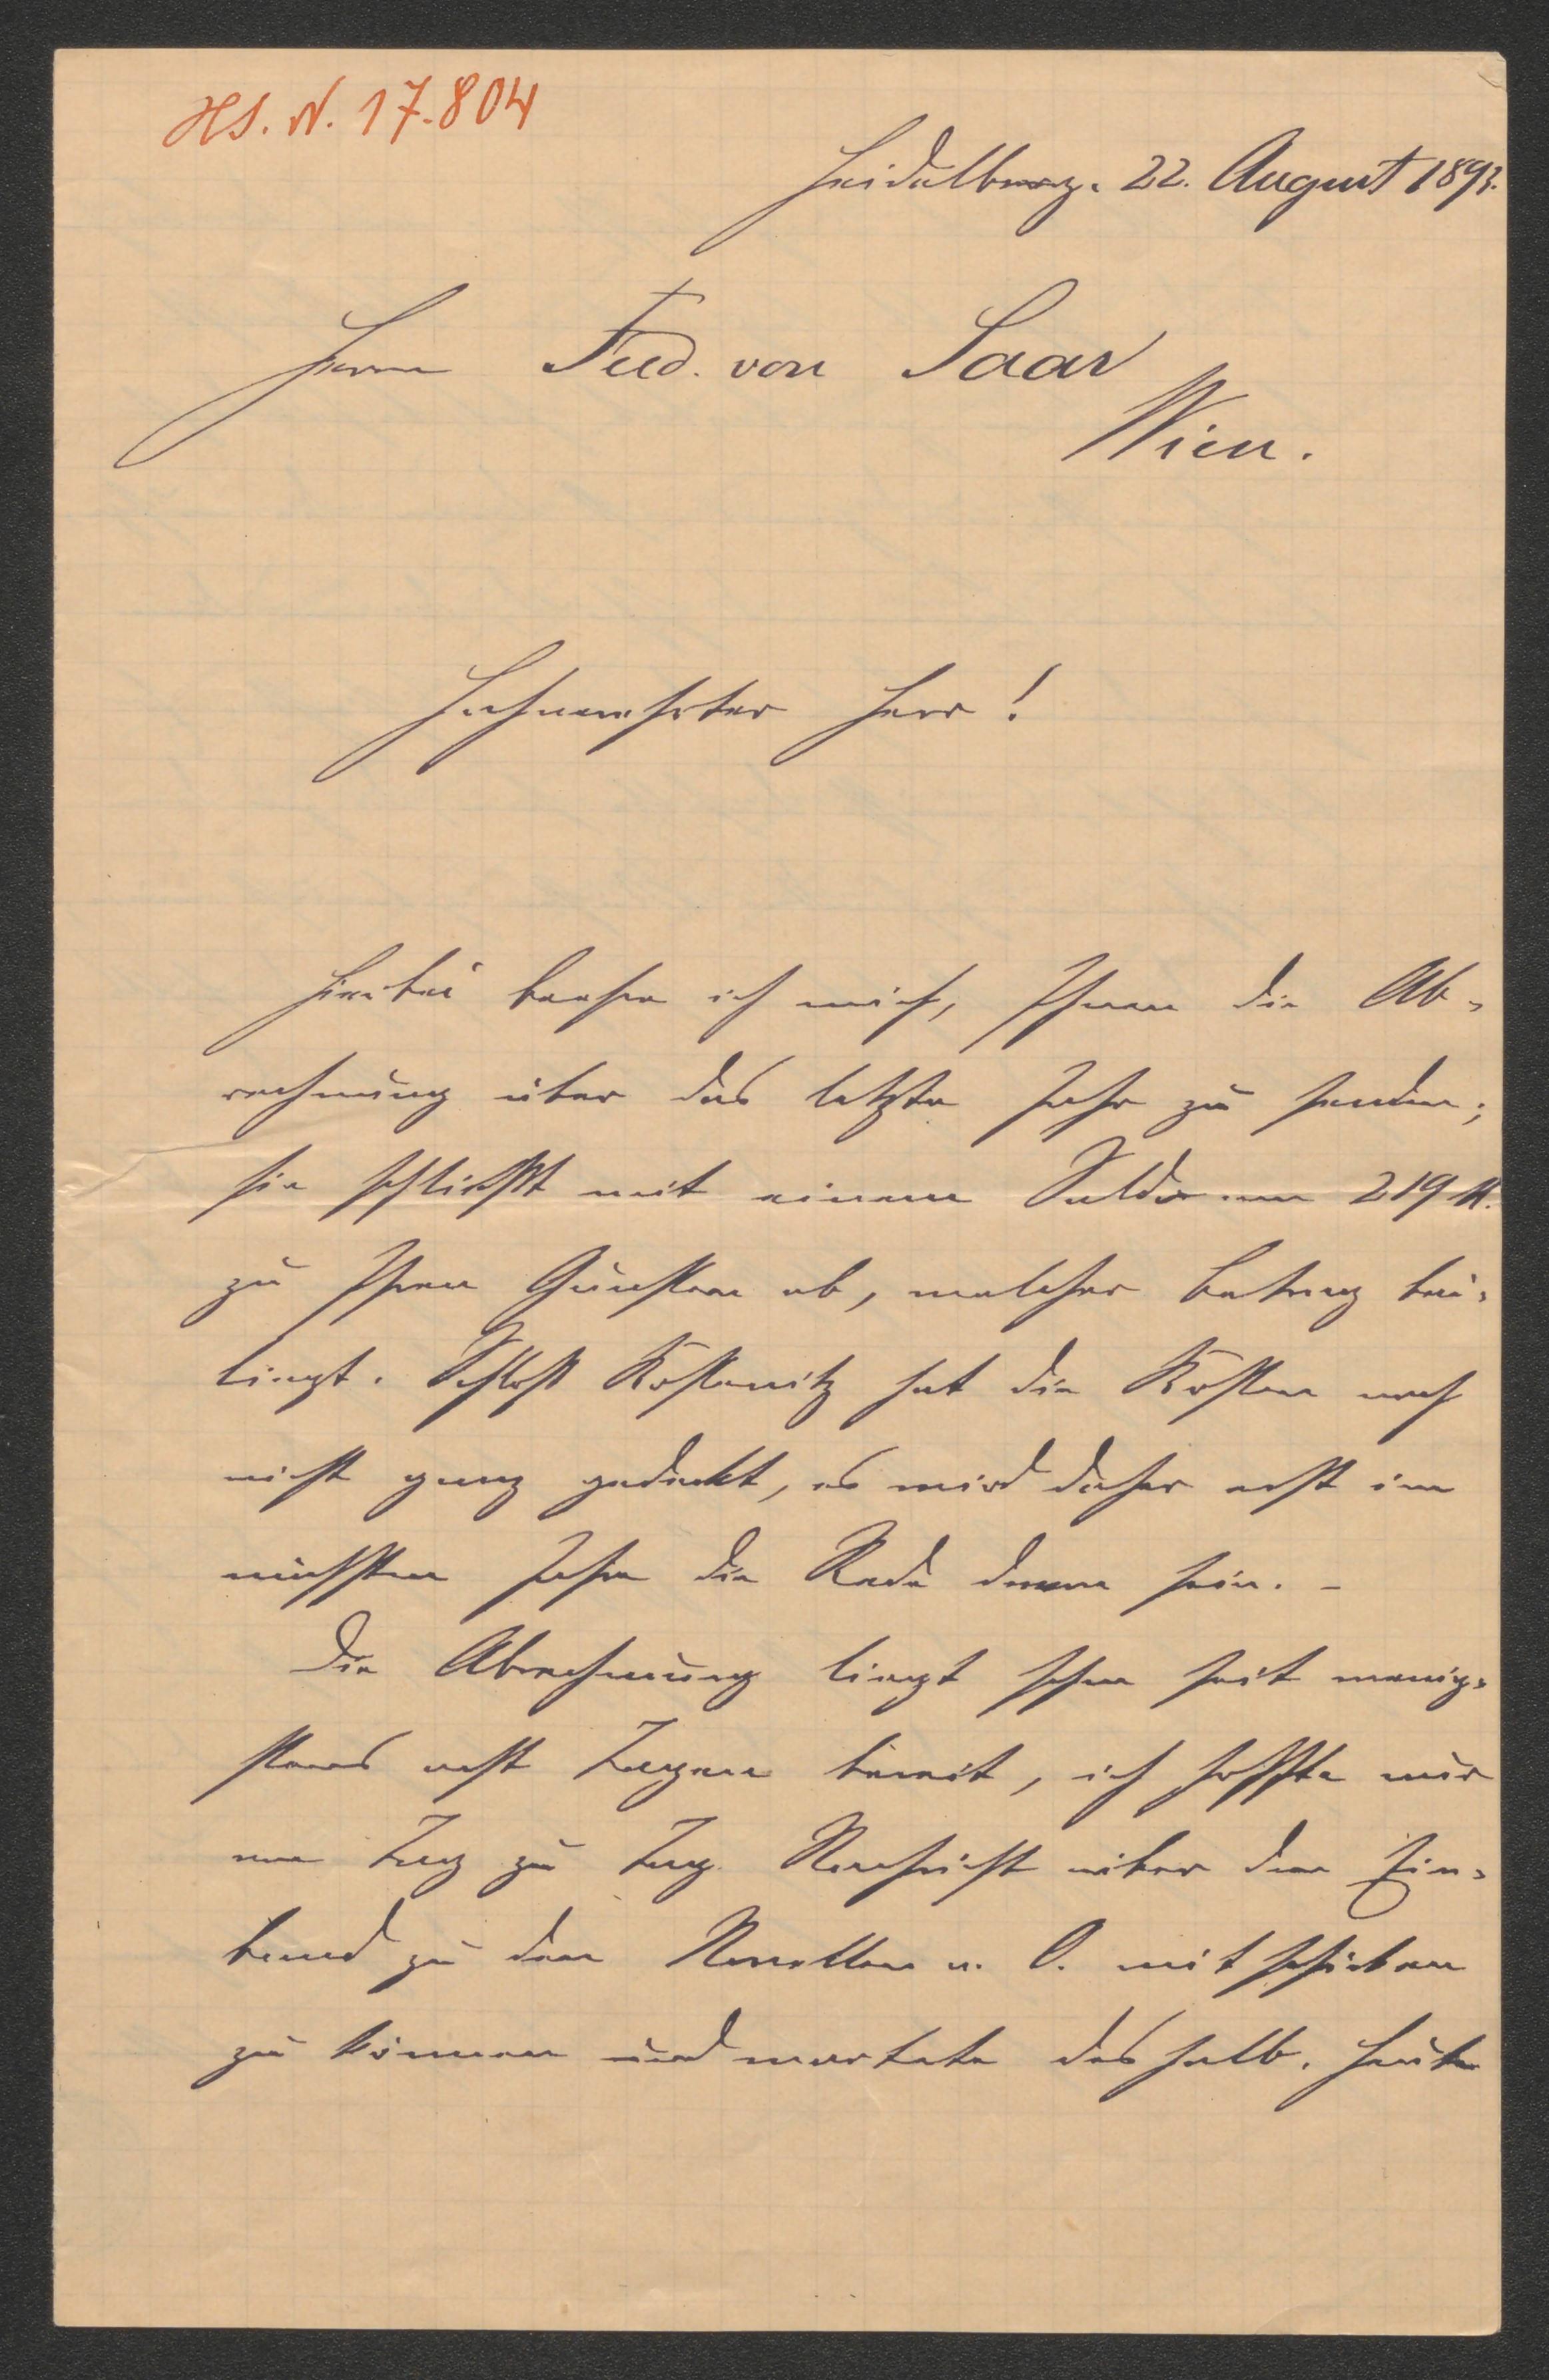 HS. N. 17.804
Heidelberg. 22. August 1893.
Herrn Ferd. von Saar
Wien.
Hochverehrter Herr!
Hierbei beehre ich mich, Ihnen die Ab-
rechnung über das letzte Jahr zu senden;
sie schließt mit einem Saldo von 219 M.
zu Ihren Gunsten ab, welcher Betrag bei-
liegt. Schloß Kostenitz hat die Kosten noch
nicht ganz gedeckt, es wird daher erst im
nächsten Jahre die Rede davon sein. –
Die Abrechnung liegt schon seit wenig-
stens acht Tagen bereit, ich hoffte nur
von Tag zu Tag Nachricht über den Ein-
band zu den Novellen a. O. mitschicken
zu können und wartete deshalb. Heute